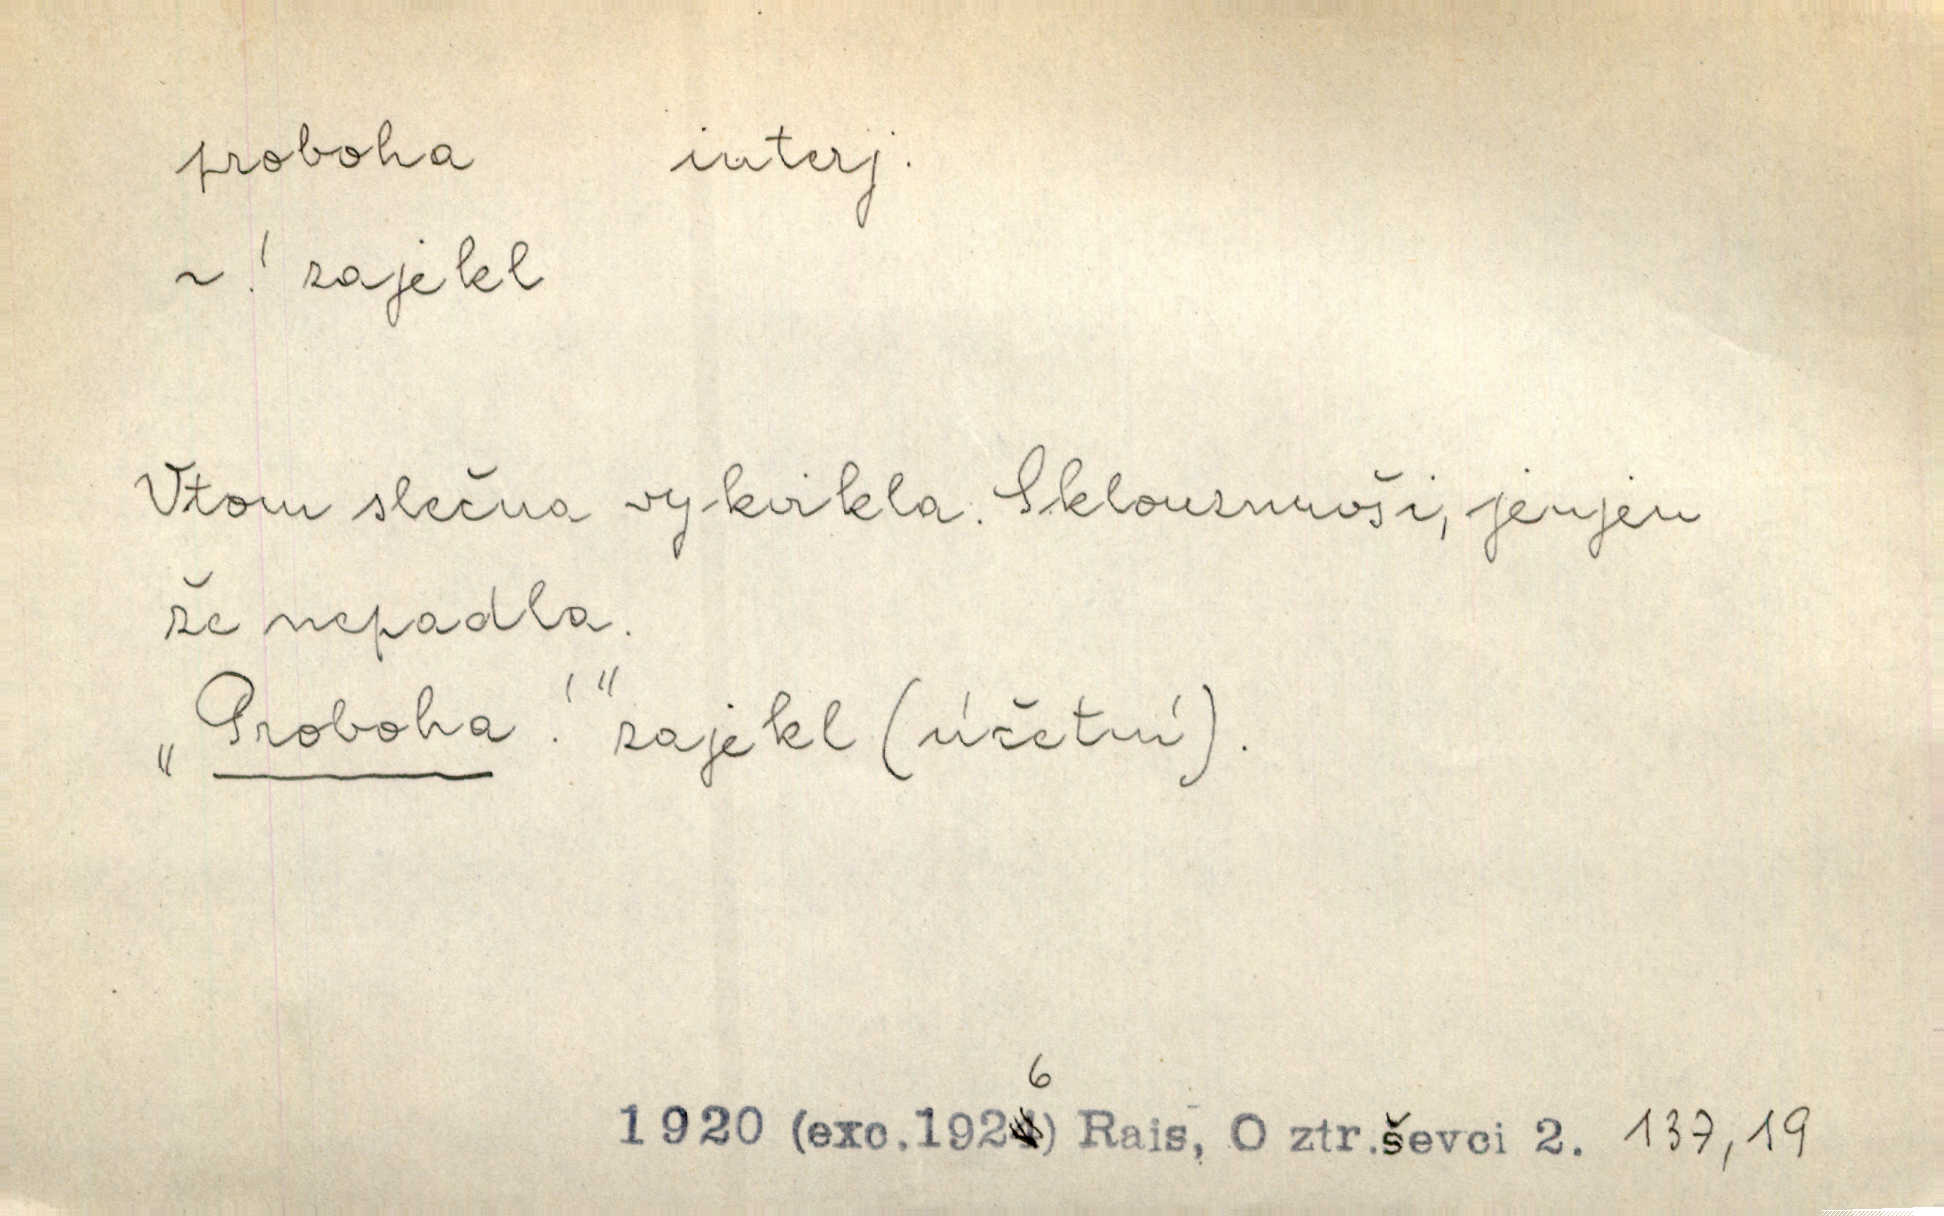 proboha interj.
~! zajekl
Vtom slečna vykvikla. Sklouznuvši, jenjen
že nepadla.
„Proboha!" zajekl (účetní).
6
1920 (exc.192) Rais, O ztr.ševci 2. 137,19